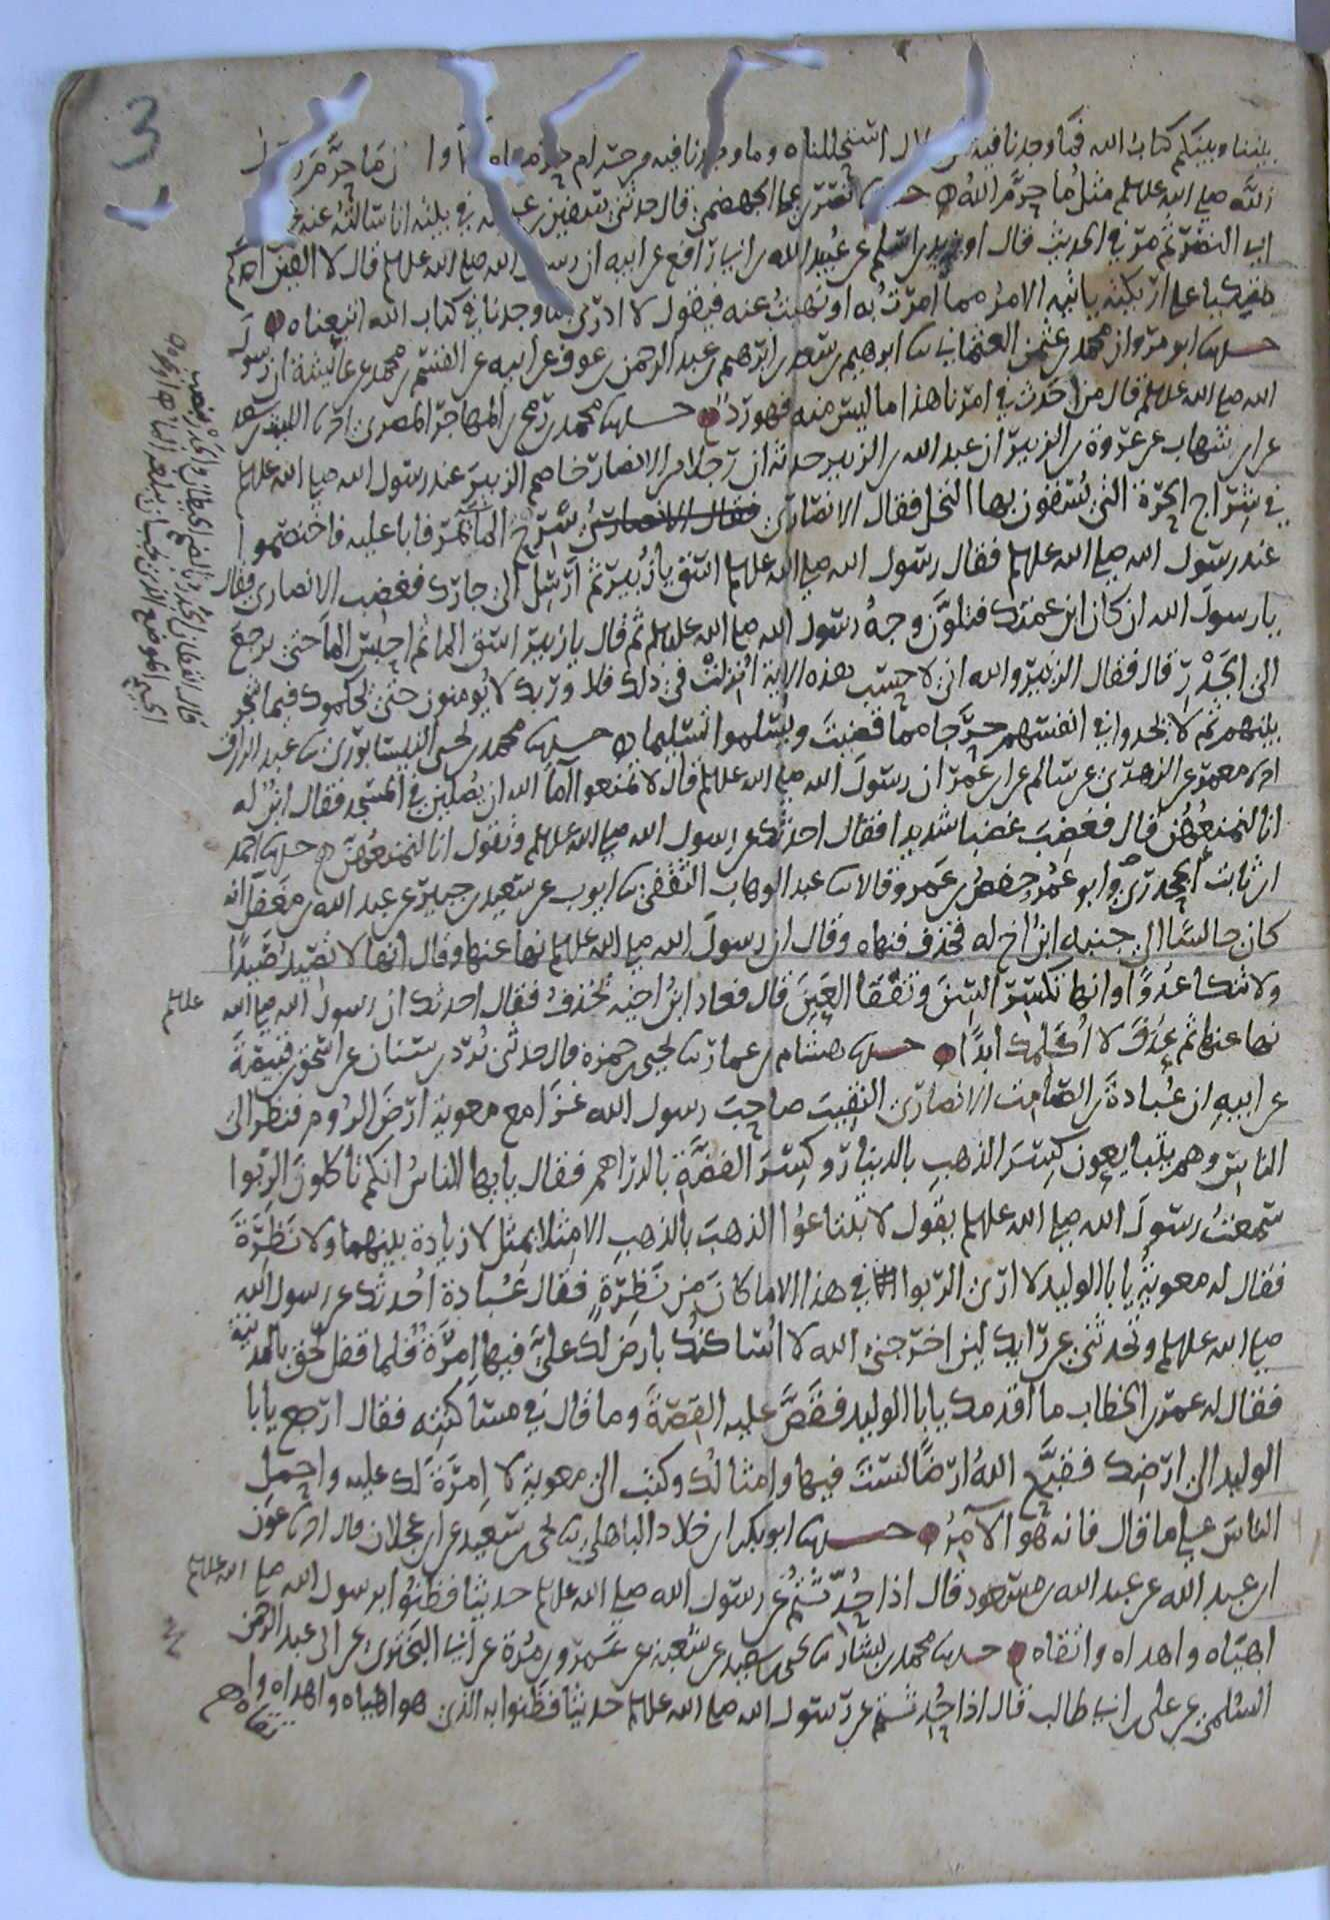 3
بيننا وبينكم كتاب الله فما وجدنا فيه من حلال استحللناه وما وجدنا فيه من حرام حرمناه الا وان ما حرم رسول
الله صلى الله عليه وسلم مثل ما حرم الله حدثنا نصر بن علي الجهضمي قال حدثني سفين بن عيينه في بيته انا سالته عنه
ابي النضر ثم مر في الحديث قال او زيد بن اسلم عن عبيد الله بن ابي رافع عن ابيه ان رسول الله صلى الله عليه وسلم قال لا الفين احدكم
متكيا على اريكته ياتيه الامر مما امرت به او نهيت عنه فيقول لا ادري ما وجدنا في كتاب الله اتبعناه
حدثنا ابو مروان محمد بن عثمن العثماني ثنا ابرهيم بن سعد بن ابرهيم بن عبد الرحمن بن عوف عن ابيه عن القسم بن محمد عن عائشة ان رسول
الله صلى الله عليه وسلم قال من احدث في امرنا هذا ما ليس منه فهو رد حدثنا محمد بن رمح بن المهاجر المصري انا الليث بن سعد
عن ابن شهاب عن عروة بن الزبير ان عبد الله بن الزبير حدثه ان رجلا من الانصار خاصم الزبير عند رسول الله صلى الله عليه وسلم
في شراج الحرة التي يسقون بها النخل فقال الانصاري فقال الانصاري سرح الما يمر فابا عليه فاختصموا
عند رسول الله صلى الله عليه وسلم فقال رسول الله صلى الله عليه وسلم اسق يا زبير ثم ارسل الى جارك فغضب الانصاري فقال
يا رسول الله ان كان ابن عمتك فتلون وجه رسول الله صلى الله عليه وسلم ثم قال يا زبير اسق الما ثم احبس الما حتى يرجع
الى الجدر قال فقال الزبير والله اني لاحسب هذه الاية انزلت في ذلك فلا وربك لا يومنون حتى يحكموك فيما شجر
بينهم ثم لا يجدوا في انفسهم حرجا مما قضيت ويسلموا تسليما حدثنا محمد بن يحيى النيسابوري ثنا عبد الرزاق
انا معمر عن الزهري عن سالم عن ابن عمر ان رسول الله صلى الله عليه وسلم قال لا تمنعوا اما الله ان يصلين في المسجد فقال ابن له
انا لنمنعهن قال فغضب غضبا شديدا فقال احدثك عن رسول الله صلى الله عليه وسلم وتقول انا لنمنعهن حدثنا احمد
ابن ثابت الجحدري وابو عمر حفص بن عمرو قالا ثنا عبد الوهاب الثقفي ثنا ايوب عن سعيد بن جبير عن عبد الله بن مغفل انه
كان جالسا الى جنبه ابن اخ له فخذف فنهاه وقال ان رسول الله صلى الله عليه وسلم نها عنها وقال انها لا تصيد صيدا
ولا تنكا عدوا وانها تكسر السن وتفقا العين قال فعاد ابن اخيه يخذف فقال احدثك ان رسول الله صلى الله عليه وسلم
نها عنها ثم عدت لا اكلمك ابدا حدثنا هشام بن عمار ثنا يحيى بن حمزه قال حدثني برد بن سنان عن اسحق بن قبيصة
عن ابيه ان عبادة بن الصامت الانصاري النقيب صاحب رسول الله غزا مع معوية ارض الروم فنظر الى
الناس وهم يتبايعون كسر الذهب بالدينار وكسر الفضة بالدراهم فقال يايها الناس انكم تاكلون الربوا
سمعت رسول الله صلى الله عليه وسلم يقول لا تبتاعوا الذهب بالذهب الا مثلا بمثل لا زيادة بينهما ولا نظرة
فقال له معوية يا با الوليد لا ارى الربوا في هذا الا ما كان من نظرة فقال عبادة احدثك عن رسول الله
صلى الله عليه وسلم وتحدثني عن رايك لين اخرجني الله لا اساكنك بارض لك علي فيها امرة فلما قفل لحق بالمدينة
فقال له عمر بن الخطاب ما اقدمك يا با الوليد فقص عليه القصة وما قال في مساكنته فقال ارجع يا با
الوليد الى ارضك فقبح الله ارضا لست فيها وامثالك وكتب الى معوية لا امرة لك عليه واحمل
الناس على ما قال فانه هو الامر حدثنا ابو بكر ابن خلاد الباهلي ثنا يحيى بن سعيد عن ابن عجلان قال انا عون
ابن عبد الله عن عبد الله بن مسعود قال اذا حدثتم عن رسول الله صلى الله عليه وسلم حديثا فظنوا برسول الله صلى الله عليه وسلم
اهياه واهداه واتقاه حدثنا محمد بن بشار ثنا يحيى بن سعيد عن شعبة عن عمرو بن مرة عن ابي البختري عن ابي عبد الرحمن
السلمي عن علي بن ابي طالب قال اذا حدثتم عن رسول الله صلى الله عليه وسلم حديثا فظنوا به الذي هو اهياه واهداه واتقاه